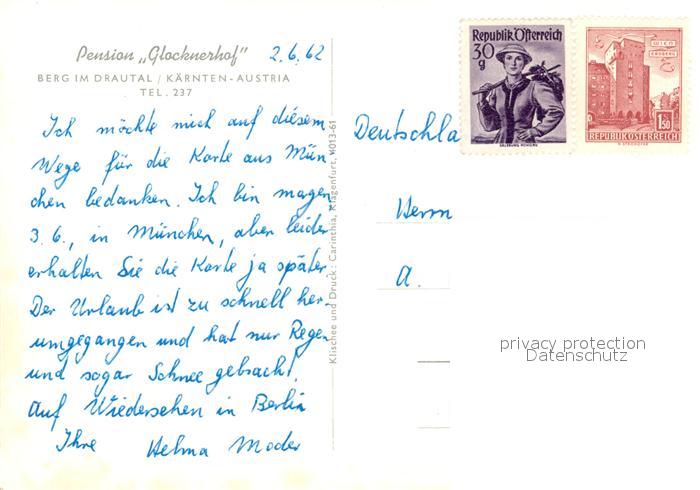 Pension „Glocknerhof"
2.6.62
BERG IM DRAUTAL / KÄRNTEN-AUSTRIA
TEL. 237
Ich möchte mich auf diesem
Wege für die Karte aus Mün-
chen bedanken. Ich bin morgen,
3.6., in München, aber leider
erhalten Sie die Karte ja später.
Der Urlaub ist zu schnell her-
umgegangen und hat nur Regen
und sogar Schnee gebracht!
Auf Wiedersehen in Berlin
Ihre Helma Moder
Klischee und Druck: Carinthia, Klagenfurt, 4013-61
Republik Österreich
30
g
SALZBURG PONGAU
WIEN
ERDBERG
1.50
REPUBLIK ÖSTERREICH
Deutschla
Herrn
A.
privacy protection
Datenschutz